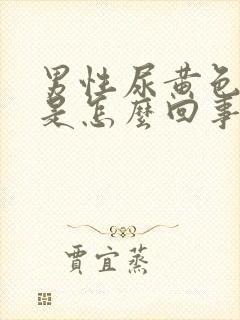 男性尿黄色
是怎麼回事
賈宜蒸